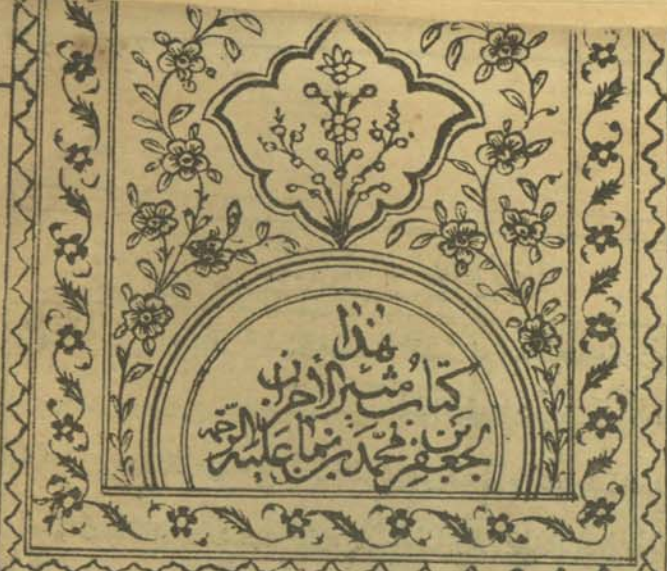 هذا
كتاب مثير الأحزان
لجعفر بن محمد بن نما عليه الرحمه